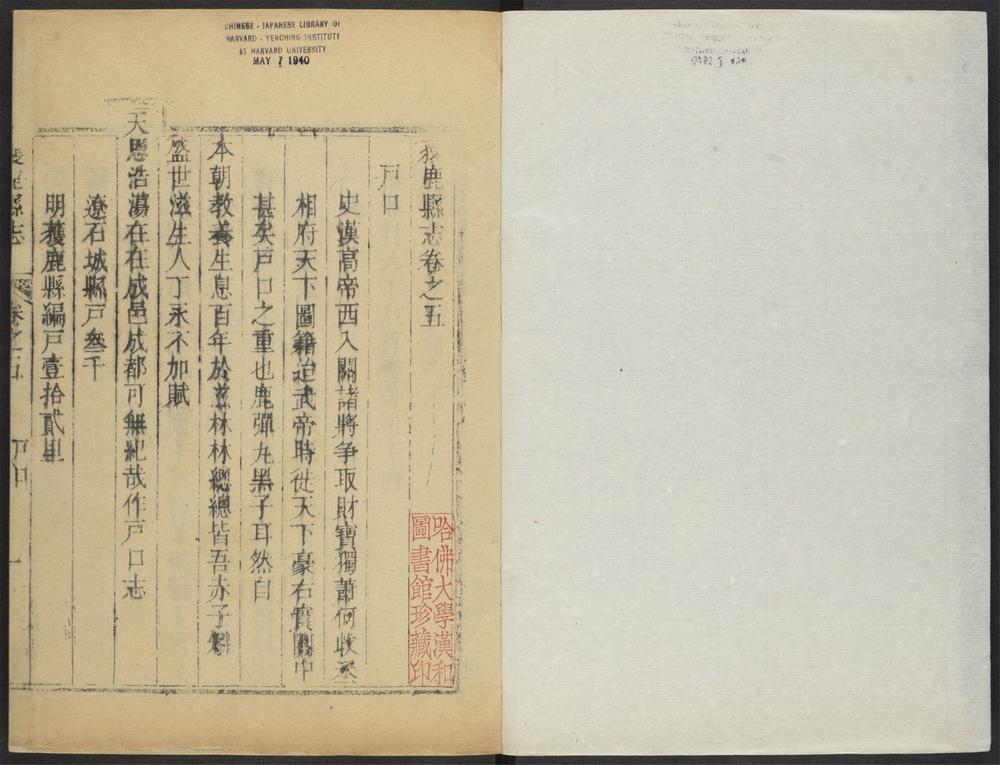 CHINESE - JAPANESE LIBRARY OF
HARVARD - YENCHING INSTITUTE
AT HARVARD UNIVERSITY
MAY 7 1940
獲鹿縣志卷之五
戶口
史漢高帝西入關諸將爭取財寶獨蕭何收丞
相府天下圖籍迨武帝時徙天下豪右實關中
甚矣戶口之重也鹿彈丸黑子耳然自
本朝敎養生息百年於茲林林總總皆吾赤子
盛世滋生人丁永不加賦
天恩浩蕩在在成邑成都可無紀哉作戶口志
遼石城縣戶叁千
明獲鹿縣編戶壹拾貳里
獲鹿縣志
卷之五
戶口
一
哈佛大學漢和
圖書館珍藏印